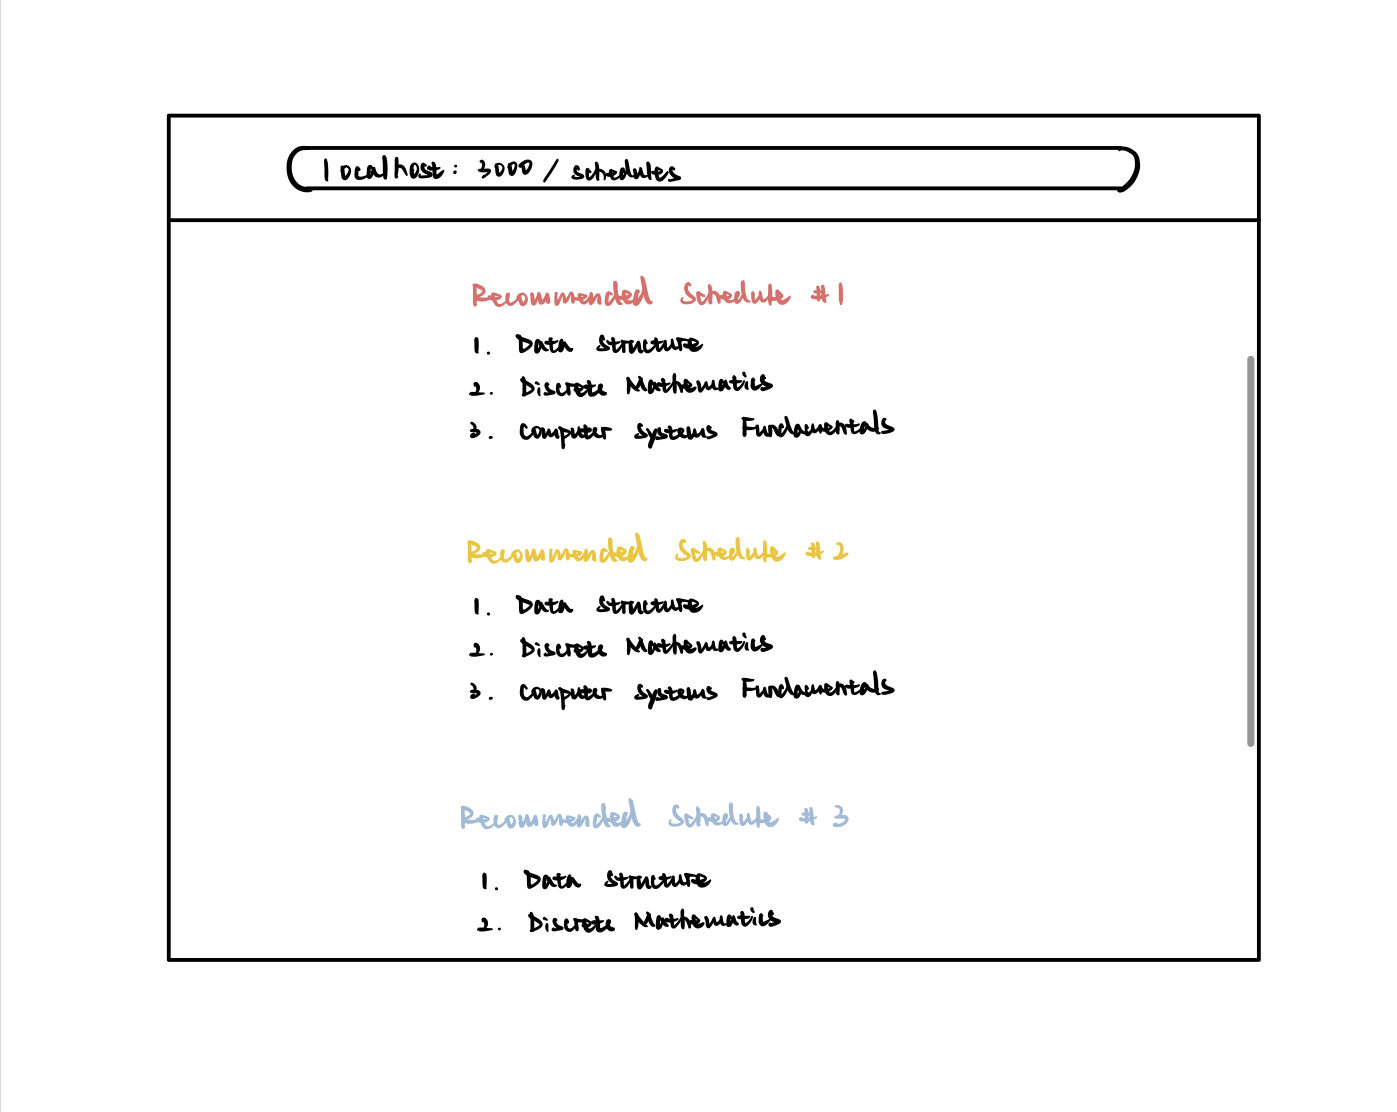 localhost: 3000 / schedules
Recommended Schedule #1
1. Data Structure
2. Discrete Mathematics
3. Computer Systems Fundamentals
Recommended Schedule #2
1. Data Structure
2. Discrete Mathematics
3. Computer Systems Fundamentals
Recommended Schedule #3
1. Data Structure
2. Discrete Mathematics